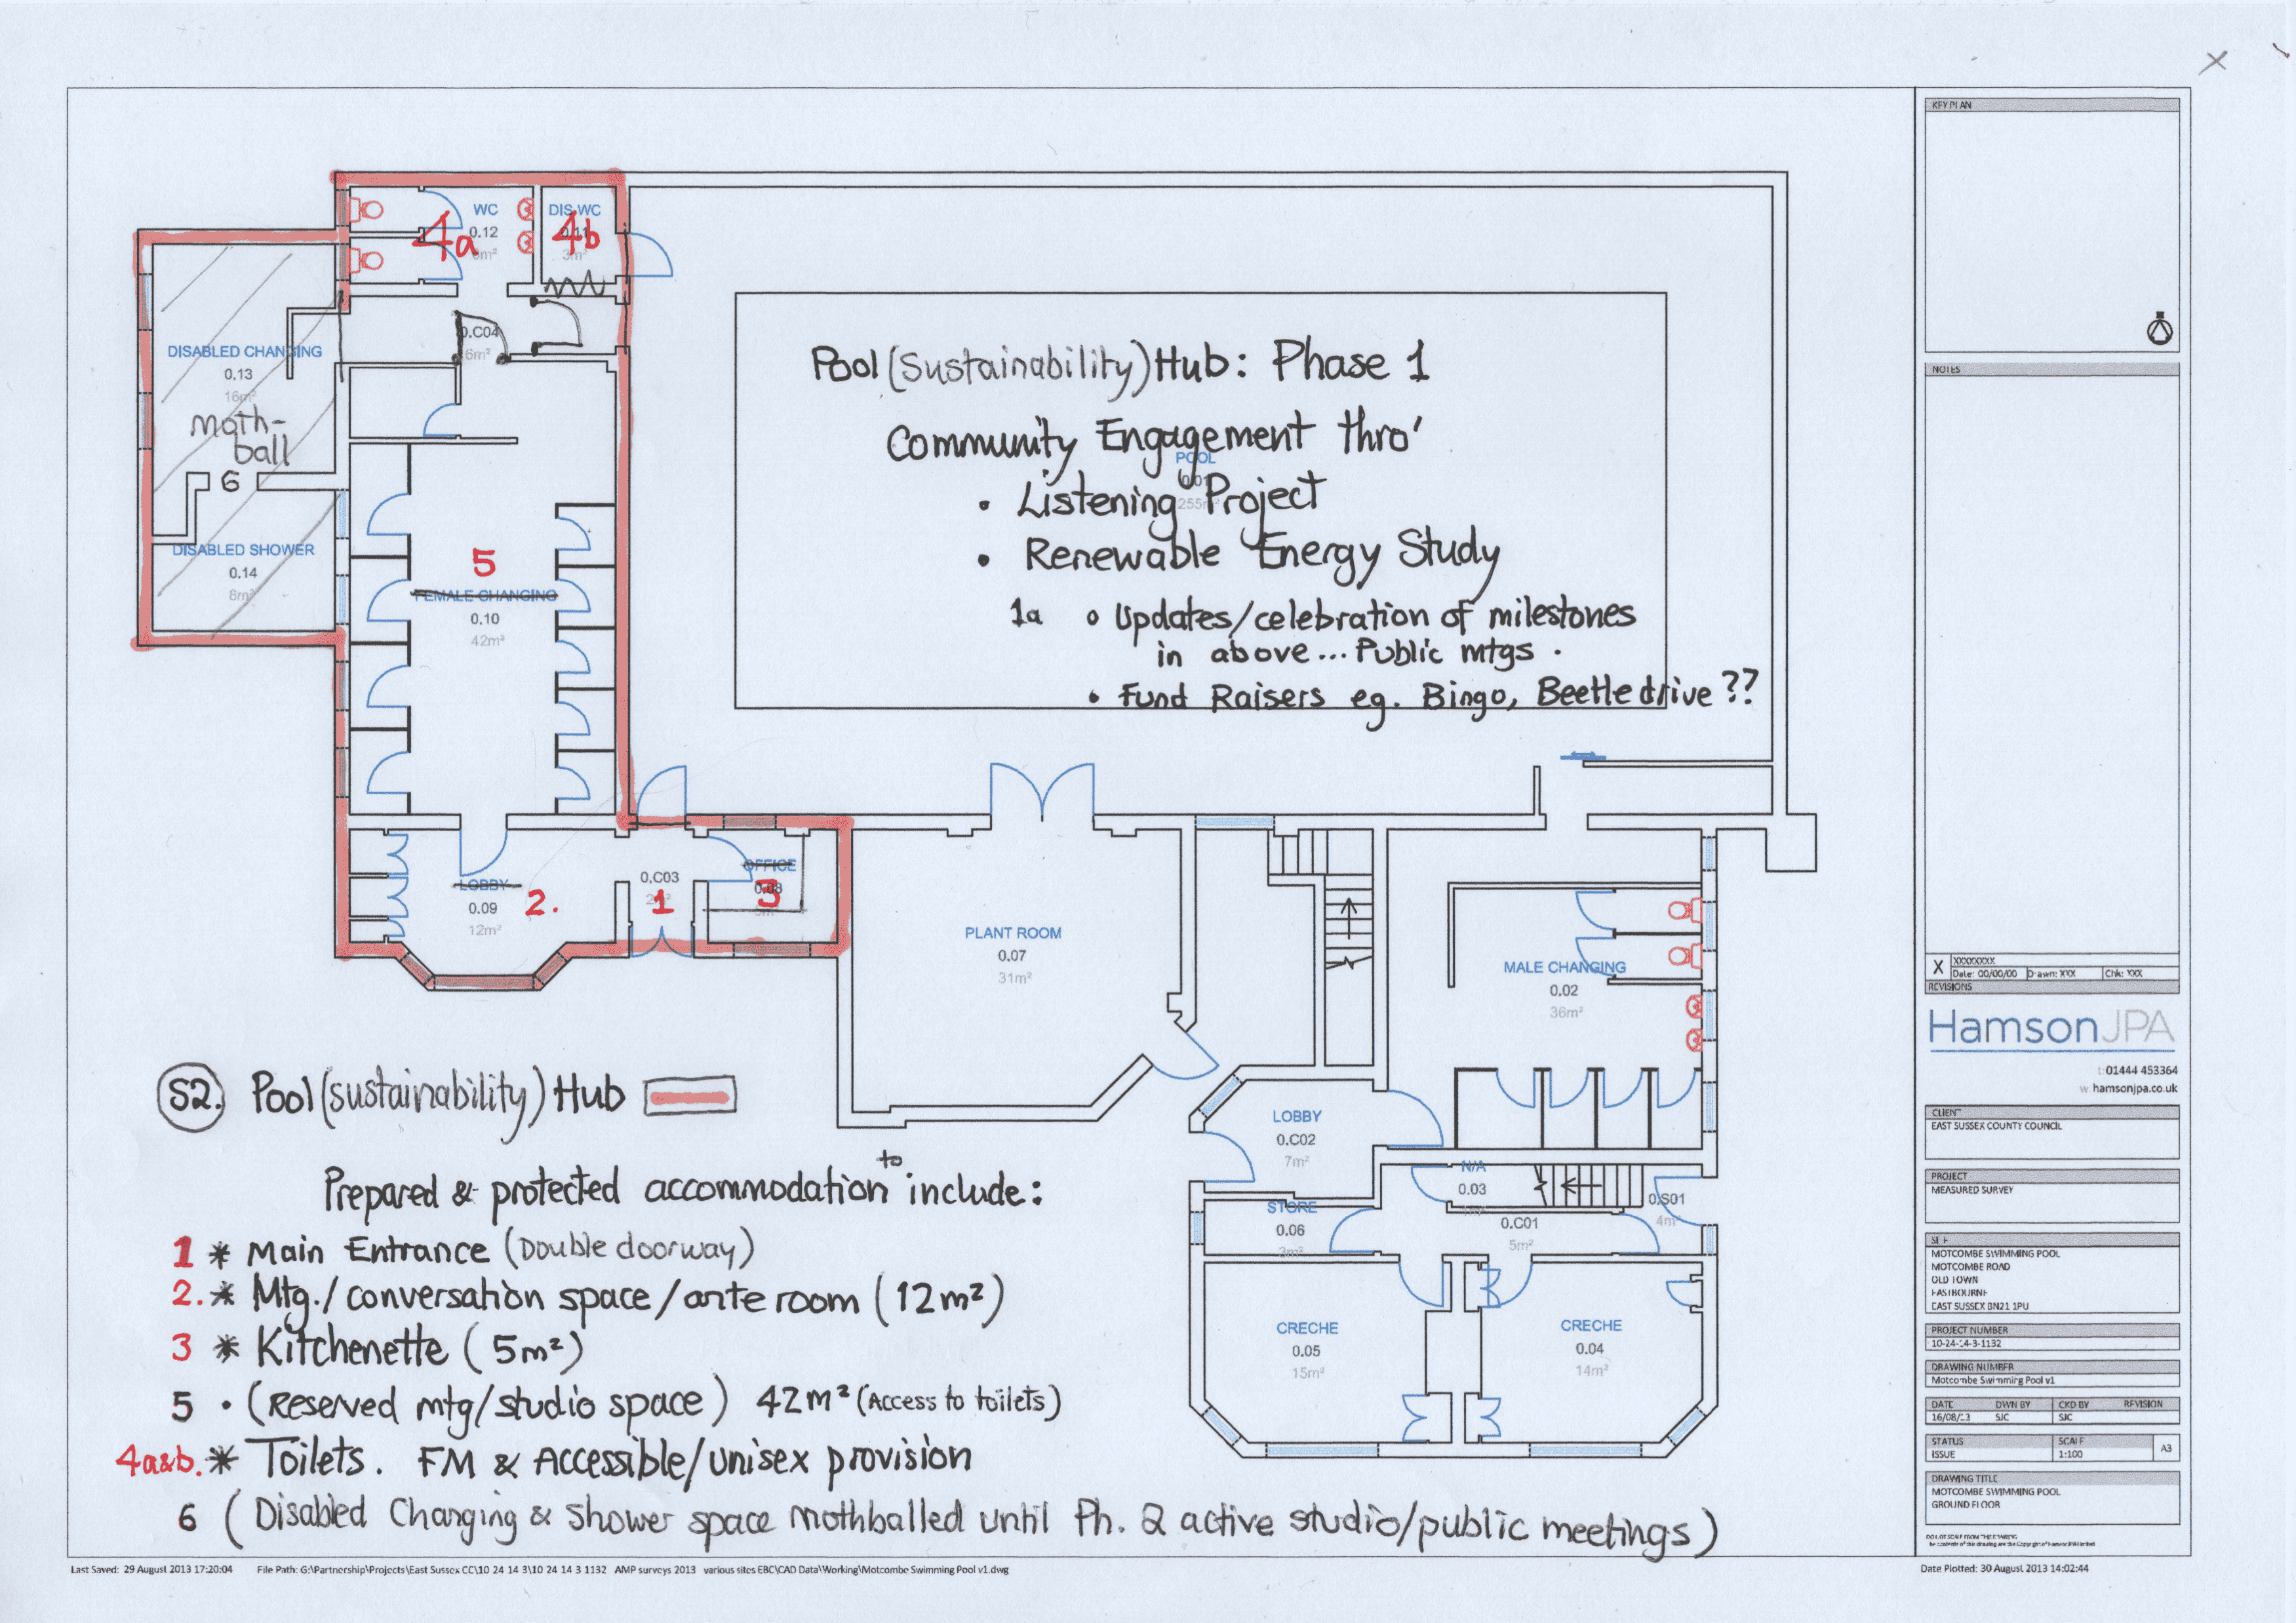 X
WC
0.12
4a
DIS WC
4b
DISABLED CHANGING
0.13
16m²
Moth-
ball
6
DISABLED SHOWER
0.14
8m²
0.C04
6m²
5
FEMALE CHANGING
0.10
42m²
Pool (Sustainability) Hub: Phase 1
Community Engagement thro'
POOL
• Listening Project
255m²
• Renewable Energy Study
1a • Updates/celebration of milestones
in above... Public mtgs.
• Fund Raisers eg. Bingo, Beetledrive ??
LOBBY
0.09
12m²
2.
0.C03
1
OFFICE
0.08
3
PLANT ROOM
0.07
31m²
MALE CHANGING
0.02
36m²
LOBBY
0.C02
7m²
N/A
0.03
0.S01
4m²
STORE
0.06
3m²
0.C01
5m²
CRECHE
0.05
15m²
CRECHE
0.04
14m²
S2. Pool (sustainability) Hub
Prepared & protected accommodation to include:
1 * Main Entrance (Double doorway)
2. * Mtg./conversation space/ante room (12m²)
3 * Kitchenette (5m²)
5 • (Reserved mtg/studio space) 42m² (Access to toilets)
4a&b. * Toilets. FM & Accessible/Unisex provision
6 (Disabled Changing & Shower space mothballed until Ph. 2 active studio/public meetings)
KEY PLAN
NOTES
X XXXXXXXX
Date: 00/00/00 Drawn: XXX Chk: XXX
REVISIONS
HamsonJPA
t: 01444 453364
w hamsonjpa.co.uk
CLIENT
EAST SUSSEX COUNTY COUNCIL
PROJECT
MEASURED SURVEY
SITE
MOTCOMBE SWIMMING POOL
MOTCOMBE ROAD
OLD TOWN
EASTBOURNE
EAST SUSSEX BN21 1PU
PROJECT NUMBER
10-24-14-3-1132
DRAWING NUMBER
Motcombe Swimming Pool v1
DATE DWN BY CKD BY REVISION
16/08/13 SJC SJC
STATUS SCALE
ISSUE 1:100 A3
DRAWING TITLE
MOTCOMBE SWIMMING POOL
GROUND FLOOR
Last Saved: 29 August 2013 17:20:04 File Path: G:\Partnership\Projects\East Sussex CC\10 24 14 3\10 24 14 3 1132 AMP surveys 2013 various sites EBC\CAD Data\Working\Motcombe Swimming Pool v1.dwg
Date Plotted: 30 August 2013 14:02:44